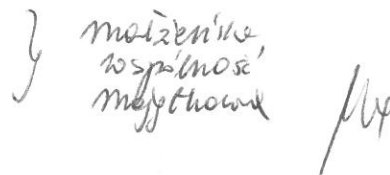 małżeńska
wspólność
majątkowa